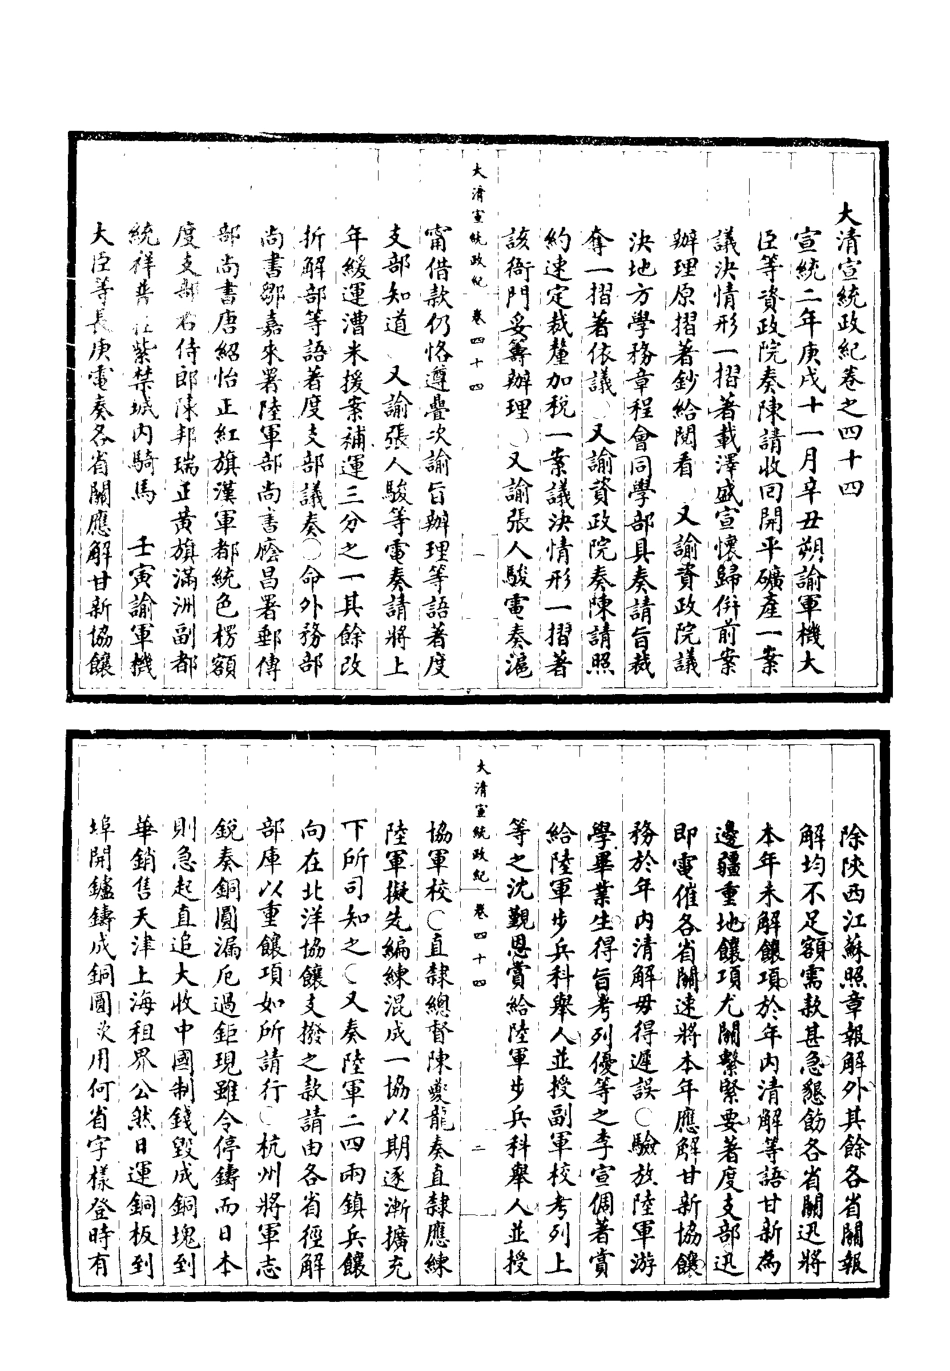 大清宣統政紀卷之四十四
宣統二年庚戌十一月辛丑朔諭軍機大
臣等資政院奏陳請收回開平礦產一案
議決情形一摺著載澤盛宣懷歸併前案
辦理原摺著鈔給閱看 又諭資政院議
決地方學務章程會同學部具奏請旨裁
奪一摺著依議○又諭資政院奏陳請照
約速定裁釐加稅一案議決情形一摺著
該衙門妥籌辦理○又諭張人駿電奏滬
大清宣統政紀 卷四十四 一
甯借款仍恪遵疊次諭旨辦理等語著度
支部知道 又諭張人駿等電奏請將上
年緩運漕米援案補運三分之一其餘改
折解部等語著度支部議奏○命外務部
尚書鄒嘉來署陸軍部尚書廕昌署郵傳
部尚書唐紹怡正紅旗漢軍都統色楞額
度支部右侍郎陳邦瑞正黃旗滿洲副都
統祥普在紫禁城內騎馬 壬寅諭軍機
大臣等長庚電奏各省關應解甘新協饟
除陝西江蘇照章報解外其餘各省關報
解均不足額需款甚急懇飭各省關迅將
本年未解饟項於年內清解等語甘新為
邊疆重地饟項尤關繫緊要著度支部迅
即電催各省關速將本年應解甘新協饟
務於年內清解毋得遲誤○驗放陸軍游
學畢業生得旨考列優等之李宣倜著賞
給陸軍步兵科舉人並授副軍校考列上
等之沈覲恩賞給陸軍步兵科舉人並授
大清宣統政紀 卷四十四 二
協軍校○直隸總督陳夔龍奏直隸應練
陸軍擬先編練混成一協以期逐漸擴充
下所司知之○又奏陸軍二四兩鎮兵饟
向在北洋協饟支撥之款請由各省徑解
部庫以重饟項如所請行○杭州將軍志
銳奏銅圓漏卮過鉅現雖令停鑄而日本
則急起直追大收中國制錢毀成銅塊到
華銷售天津上海租界公然日運銅板到
埠開鑪鑄成銅圓欲用何省字樣登時有